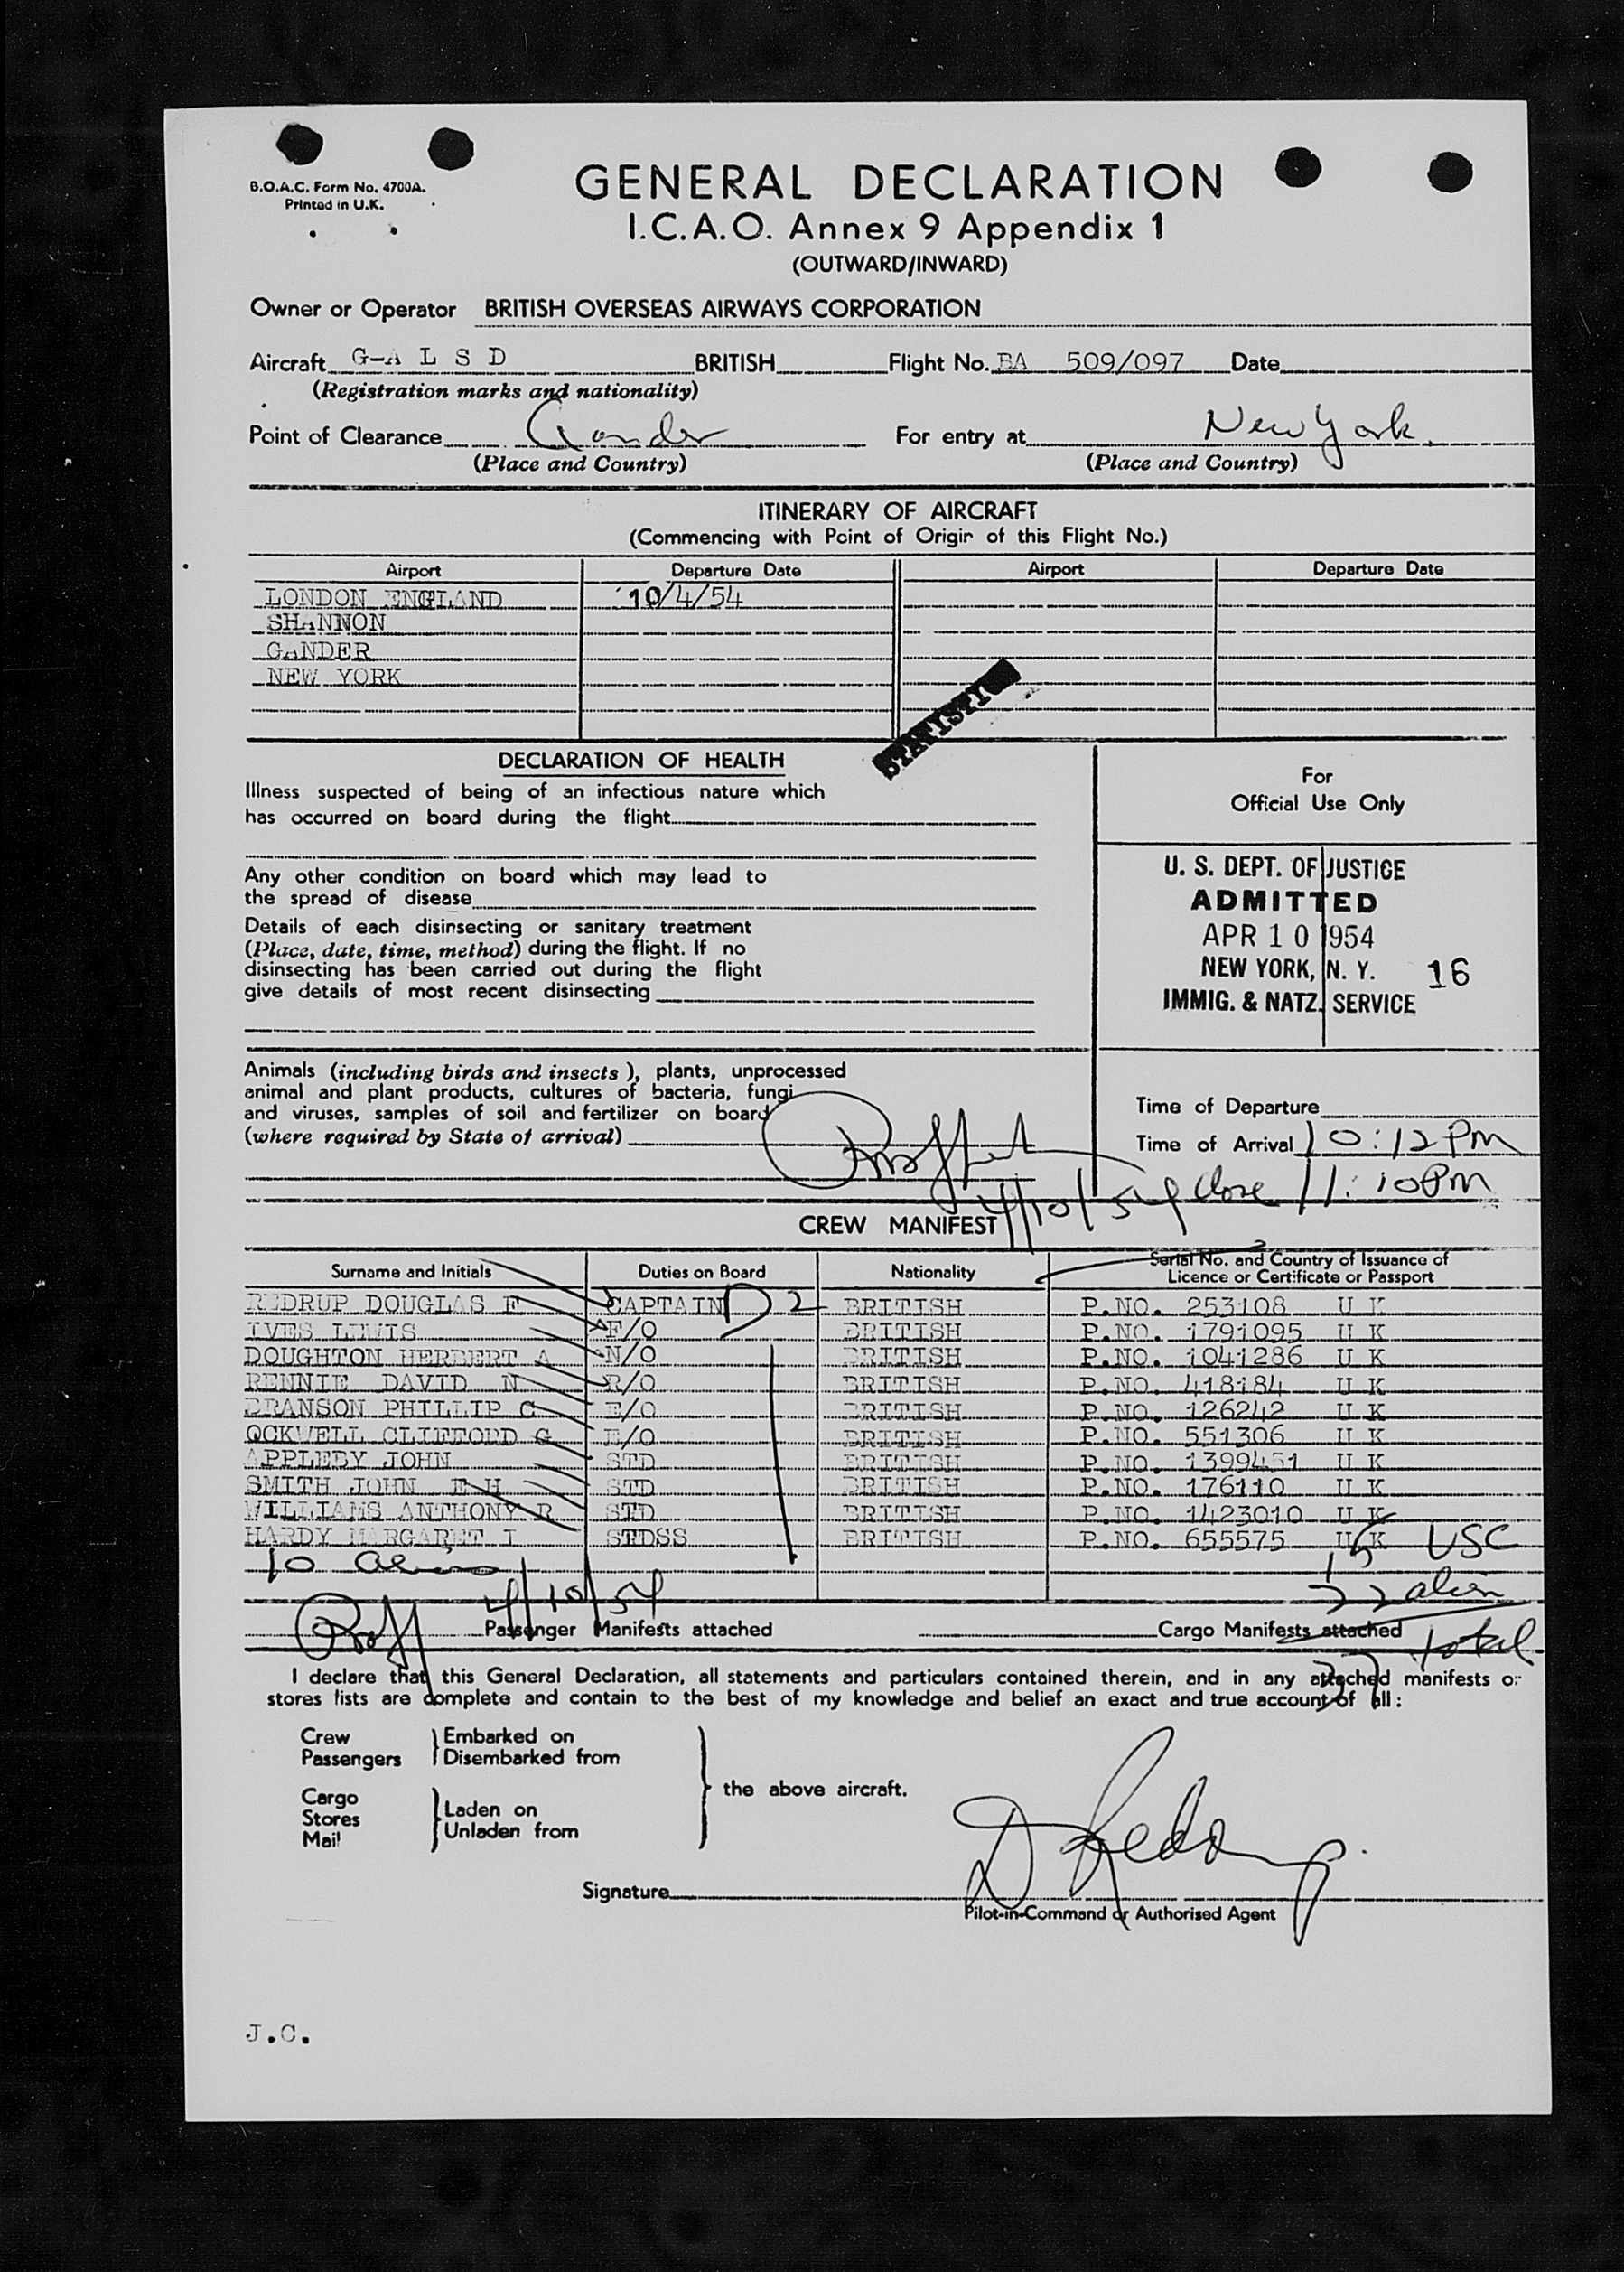 B.O.A.C. Form No. 4700A.
Printed in U.K.
GENERAL DECLARATION
I.C.A.O. Annex 9 Appendix 1
(OUTWARD/INWARD)
Owner or Operator BRITISH OVERSEAS AIRWAYS CORPORATION
Aircraft G-A L S D BRITISH Flight No. BA 509/097 Date
(Registration marks and nationality)
Point of Clearance Gander For entry at New York.
(Place and Country) (Place and Country)
ITINERARY OF AIRCRAFT
(Commencing with Point of Origin of this Flight No.)
Airport Departure Date Airport Departure Date
LONDON ENGLAND 10/4/54
SHANNON
GANDER
NEW YORK
DECLARATION OF HEALTH
Illness suspected of being of an infectious nature which
has occurred on board during the flight
Any other condition on board which may lead to
the spread of disease
Details of each disinsecting or sanitary treatment
(Place, date, time, method) during the flight. If no
disinsecting has been carried out during the flight
give details of most recent disinsecting
For
Official Use Only
U. S. DEPT. OF JUSTICE
ADMITTED
APR 10 1954
NEW YORK, N. Y. 16
IMMIG. & NATZ. SERVICE
Animals (including birds and insects), plants, unprocessed
animal and plant products, cultures of bacteria, fungi
and viruses, samples of soil and fertilizer on board
(where required by State of arrival)
Time of Departure
Time of Arrival 10:12 PM
4/10/54 Close 11:10 PM
CREW MANIFEST
Surname and Initials Duties on Board Nationality Serial No. and Country of Issuance of
Licence or Certificate or Passport
REDRUP DOUGLAS F CAPTAIN D2 BRITISH P.NO. 253108 U K
IVES LEWIS F/O BRITISH P.NO. 1791095 U K
DOUGHTON HERBERT A N/O BRITISH P.NO. 1041286 U K
RENNIE DAVID N R/O BRITISH P.NO. 418184 U K
BRANSON PHILLIP C E/O BRITISH P.NO. 126242 U K
OCKWELL CLIFFORD G E/O BRITISH P.NO. 551306 U K
APPLEBY JOHN STD BRITISH P.NO. 1399451 U K
SMITH JOHN E H STD BRITISH P.NO. 176110 U K
WILLIAMS ANTHONY R STD BRITISH P.NO. 1423010 U K
HARDY MARGARET I STDSS BRITISH P.NO. 655575 U K
15 USC
10
22 alien
4/10/54
Passenger Manifests attached Cargo Manifests attached
37 total
I declare that this General Declaration, all statements and particulars contained therein, and in any attached manifests or
stores lists are complete and contain to the best of my knowledge and belief an exact and true account of all:
Crew Embarked on
Passengers Disembarked from
the above aircraft.
Cargo
Stores Laden on
Mail Unladen from
D Redrup.
Signature
Pilot-in-Command or Authorised Agent
J.C.